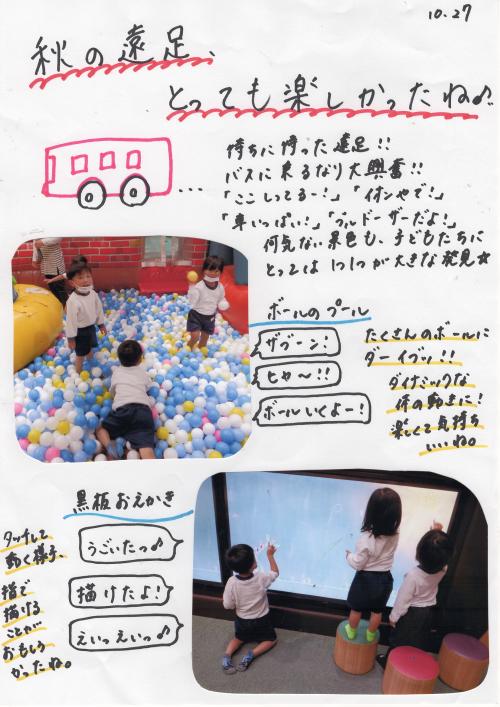 10.27
秋の遠足、
とっても楽しかったね♪
待ちに待った遠足!!
バスに乗るなり大興奮!!
「ここしってるー!」「イオンやで!」
「車いっぱい!」「ブルドーザーだよ!」
何気ない景色も、子どもたちに
とっては1つ1つが大きな発見☆
ボールのプール
ザブーン!
ヒャ〜!!
ボールいくよー!
たくさんのボールに
ダーイブッ!!
ダイナミックな
体の動きに!
楽しくて気持ち
いいね。
黒板おえかき
うごいたっ♪
描けたよ!
えいっえいっ♪
タッチして
動く様子、
指で
描ける
ことが
おもしろ
かったね。